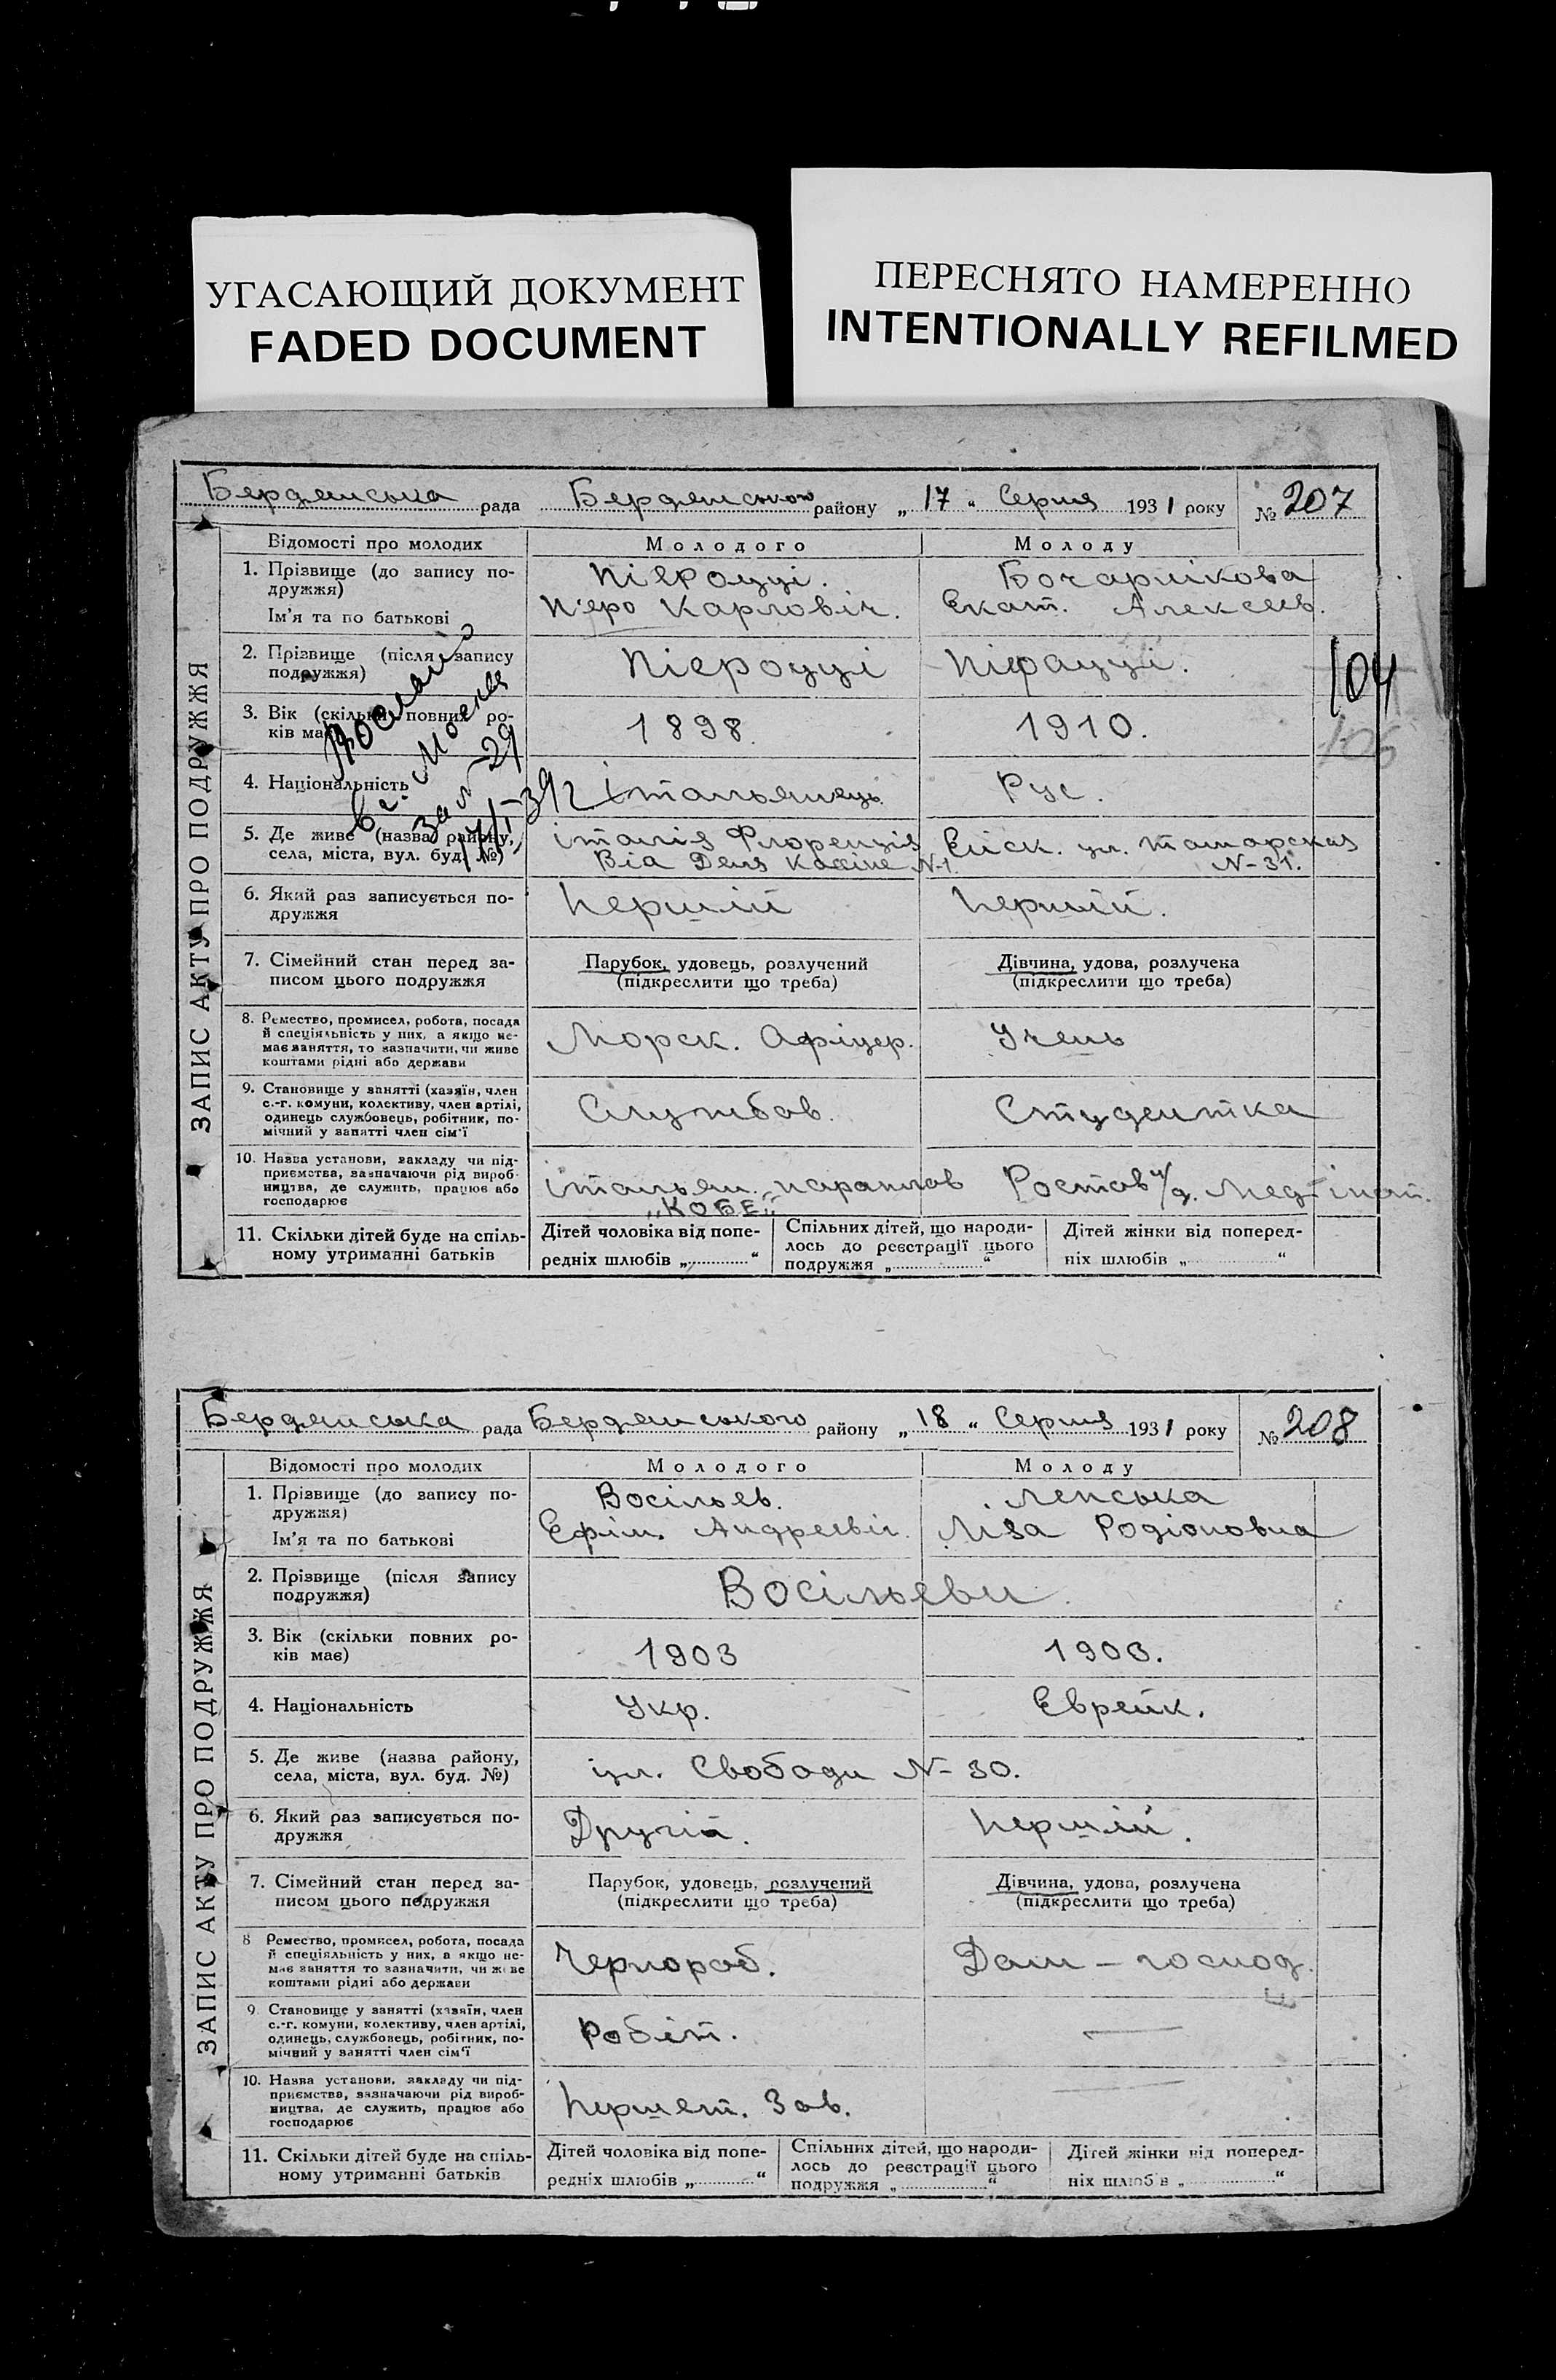 УГАСАЮЩИЙ ДОКУМЕНТ
FADED DOCUMENT
ПЕРЕСНЯТО НАМЕРЕННО
INTENTIONALLY REFILMED
ЗАПИС АКТУ ПРО ПОДРУЖЖЯ
Бердянська рада Бердянського району „17“ Серпня 1931 року № 207
Відомості про молодих Молодого Молоду
1. Прізвище (до запису по- Піероцці. Бочарнікова
дружжя)
Ім'я та по батькові П'єро Карловіч. Екат. Алексеев.
2. Прізвище (після запису Піероцці Піфацці.
подружжя)
104
106
3. Вік (скільки повних ро- 1898 1910.
ків має)
4. Національність Італьянець Рус.
Послано
в г. Москва
за № 29
17/I-39г
5. Де живе (назва району, італія Флоренція Ейск. ул. татарская
села, міста, вул. буд. №) Віа Деля Кассіне N-1. N-31.
6. Який раз записується по- Першій Першій.
дружжя
7. Сімейний стан перед за- Парубок, удовець, розлучений Дівчина, удова, розлучена
писом цього подружжя (підкреслити що треба) (підкреслити що треба)
8. Ремество, промисел, робота, посада
й спеціяльність у них, а якщо не- Морск. Офіцер. Учень
має заняття, то зазначити, чи живе
коштами рідні або держави
9. Становище у занятті (хазяїн, член
с.-г. комуни, колективу, член артілі, Службов. Студентка
одинець службовець, робітник, по-
мічний у занятті член сім'ї
10. Назва установи, закладу чи під-
приємства, зазначаючи рід вироб- італьян. параплав Ростов н/д. Мед-інст.
ництва, де служить, працює або „КОБЕ“
господарює
11. Скільки дітей буде на спіль- Дітей чоловіка від попе- Спільних дітей, що народи- Дітей жінки від поперед-
ному утриманні батьків редніх шлюбів „ “ лось до реєстрації цього ніх шлюбів „ “
подружжя „ “
ЗАПИС АКТУ ПРО ПОДРУЖЖЯ
Бердянська рада Бердянського району „18“ Серпня 1931 року № 208
Відомості про молодих Молодого Молоду
1. Прізвище (до запису по- Восільев. Ленська
дружжя)
Ім'я та по батькові Ефім. Андреевіч. Ліза Родіоновна
2. Прізвище (після запису Восільеви
подружжя)
3. Вік (скільки повних ро- 1903 1903.
ків має)
4. Національність Укр. Еврейк.
5. Де живе (назва району, ул. Свободи N-30.
села, міста, вул. буд. №)
6. Який раз записується по- Другій. Першій.
дружжя
7. Сімейний стан перед за- Парубок, удовець, розлучений Дівчина, удова, розлучена
писом цього подружжя (підкреслити що треба) (підкреслити що треба)
8 Ремество, промисел, робота, посада
й спеціяльність у них, а якщо не- Чернороб. Дом-господ.
має заняття то зазначити, чи живе
коштами рідні або держави
9. Становище у занятті (хазяїн, член
с.-г. комуни, колективу, член артілі, Робіт.
одинець, службовець, робітник, по-
мічний у занятті член сім'ї
10. Назва установи, закладу чи під-
приємства, зазначаючи рід вироб- Першет. Зав.
ництва, де служить, працює або
господарює
11. Скільки дітей буде на спіль- Дітей чоловіка від попе- Спільних дітей, що народи- Дітей жінки від поперед-
ному утриманні батьків редніх шлюбів „ “ лось до реєстрації цього ніх шлюбів „ “
подружжя „ “